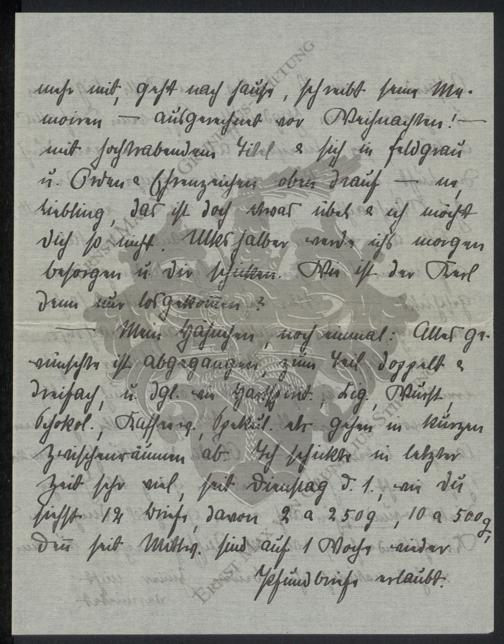 mehr mit, geht nach Hause, schreibt seine Me-
moiren — ausgerechnet vor Weihnachten! —
mit hochtrabendem Titel & sich in feldgrau
u. Orden & Ehrenzeichen oben drauf – ne,
Liebling, das ist doch etwas übel & ich möcht
dich so nicht. Ulks halber werde ichs morgen
besorgen u. dir schicken. Wie ist der Kerl
denn nur losgekom̄en?
— Mein Häschen, noch einmal: Alles ge-
wünschte ist abgegangen, zum Teil doppelt &
dreifach, u. dgl. wie Zig., Wurst,
Schokol., Kaffee, Spekul. etc gehen in kurzen
Zwischenräumen ab. Ich schickte in letzter
Zeit sehr viel, seit Dienstag d. 1., wie du
siehst 12 Briefe, davon 2 a 250g, 10 a 500g,
den̄ seit Mittw. sind auf 1 Woche wieder
Pfundbriefe erlaubt.